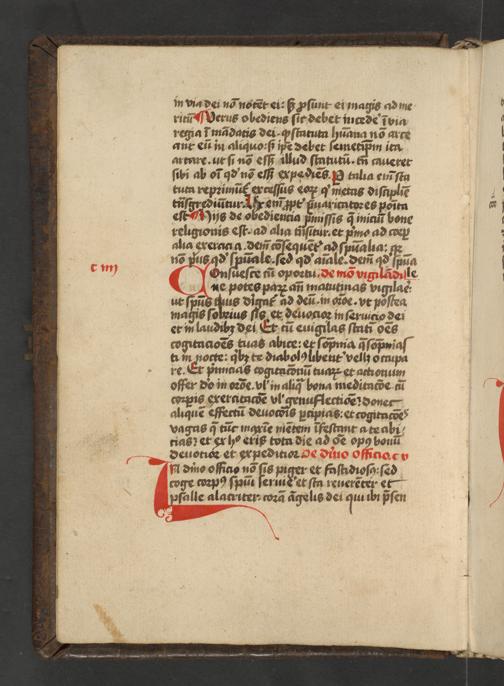 in via dei nō nocēt ei: sꝫ ꝓsunt ei magis ad me
ritū Verus obediens sic debet incede ī via
regia ī mādatis dei ꝙ statuta hūana nō arce
ant eū in aliquo: sꝫ ipe debet semetipm ita
artare ut si non essꝫ illud statutū tn̄ caueret
sibi ab oī qd nō essꝫ expediēs. talia em̄ sta
tuta reprimūt excessus eoꝝ q̄ metas discipline
tn̄sgrediūtur. em̄ ꝓpt p̄uaricatores posita
est Hijs de obediencia p̄missis q̄ iniciū bone
religionis est ad alia tn̄situr. et pͥmo ad corꝑ
alia exercicia. dem̄ cōsequēt ad spūalia: qꝛ
no pͥus qd spūale. sed qd aīale. dem̄ qd spūa
c iiij
Consuesce cū oportu. de mō vigilādi le
ne potes parꝝ an̄ matutinas vigilaē
ut spūs tuus digeē ad deū. in orōe. ut postea
magis sobrius sis et deuocior in seruicio dei
et in laudibꝫ dei Et cū euigilas stati oēs
cogitacioēs tuas abice: et sōpnia q̄ sōpnias
ti in nocte: qbꝫ te diabolꝰ libent vellꝫ occupa
re. Et pͥmicias cogitacōnū tuaꝝ et actionum
offer dō in orōe. vl in aliq̄ bona meditacōe cū
corpis exercitacōe vl genuflectiōe: donec
aliquē effectū deuocōis ꝑcipias: et cogitacōes
vagas q̄ tūc maxīe mētem īfestant a te abi
cias: et ex hͦ eris tota die ad oē opꝰ bonū
deuocior et expeditior De diūo officio. c v
In diūo officio nō sis piger et fastidiosꝰ: sed
coge corpꝰ spūi seruire et sta reuerēter et
psalle alacriter corā āgelis dei qui ibi p̄sen